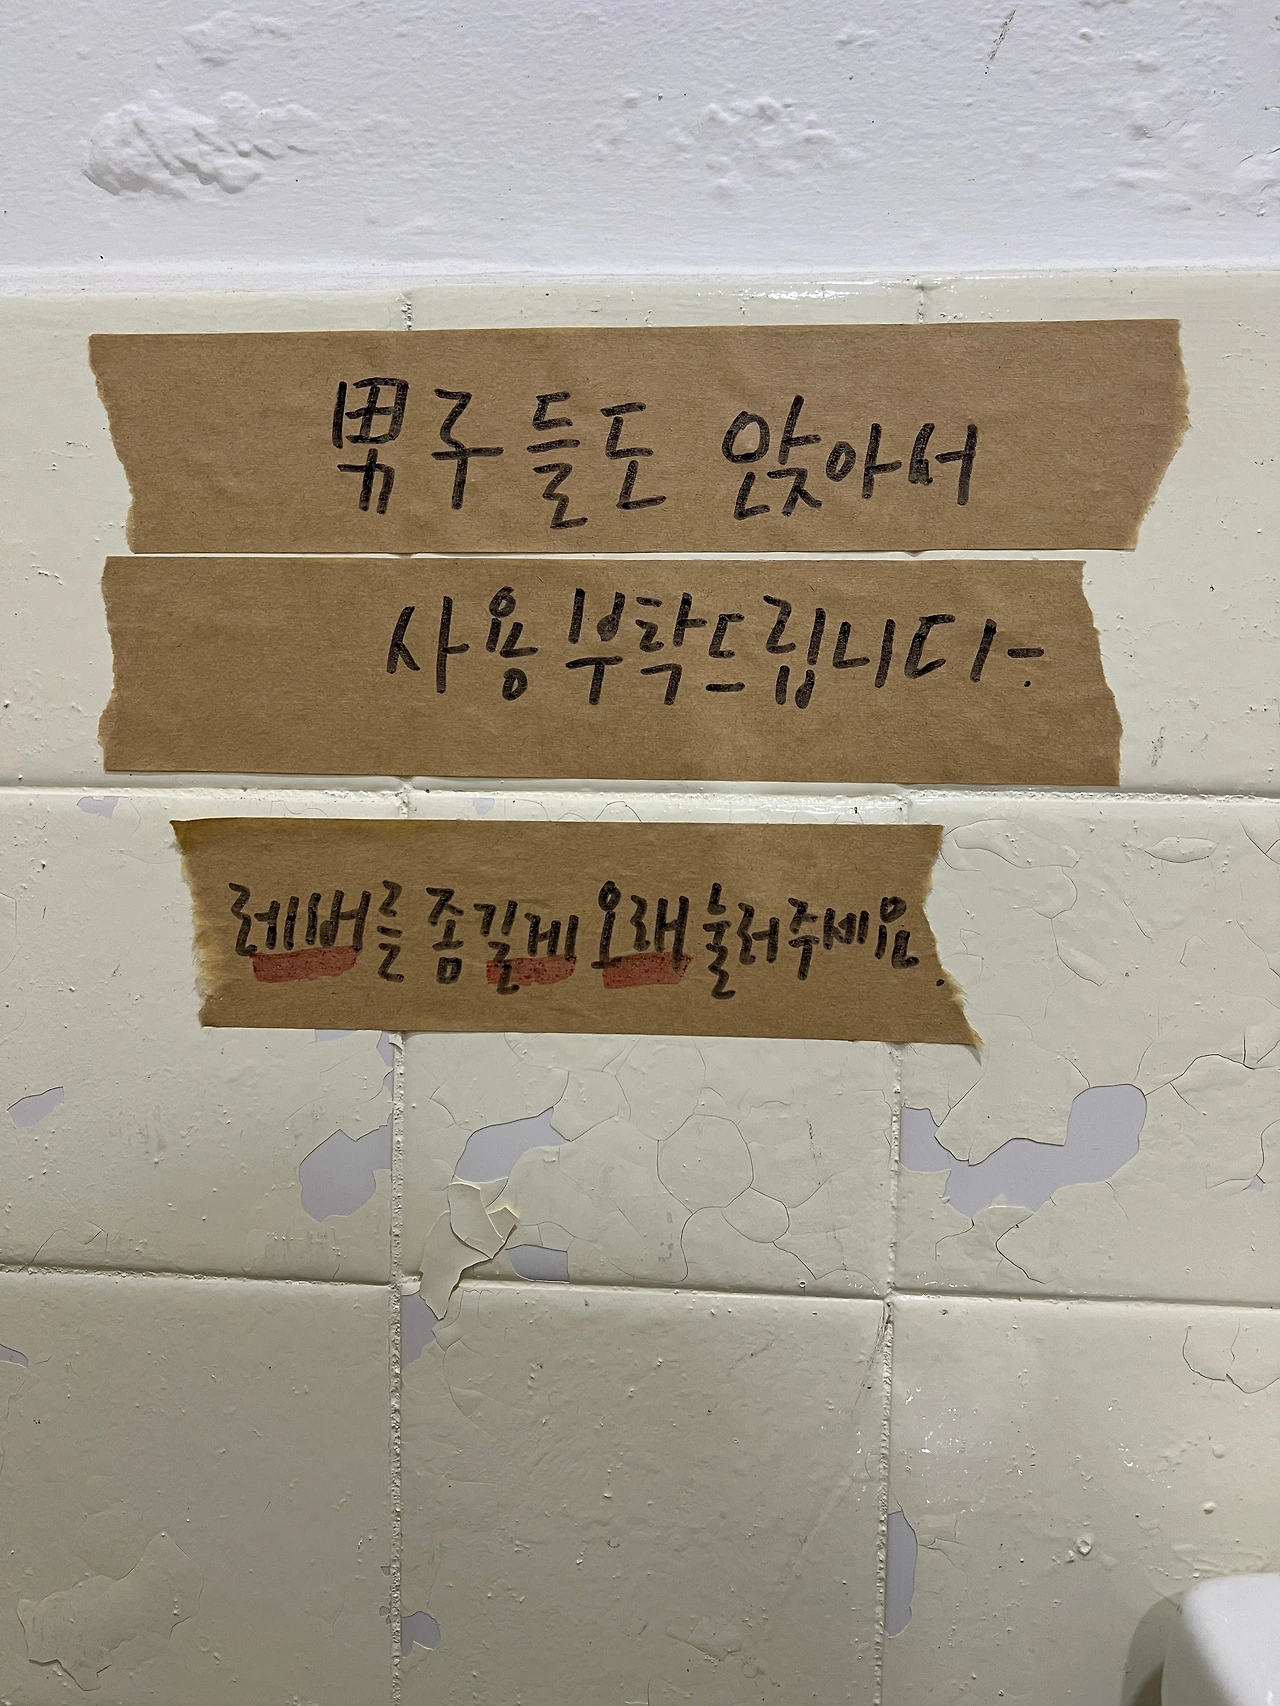 男子들도 앉아서
사용 부탁드립니다-.
레버를 좀 길게 오래 눌러주세요.